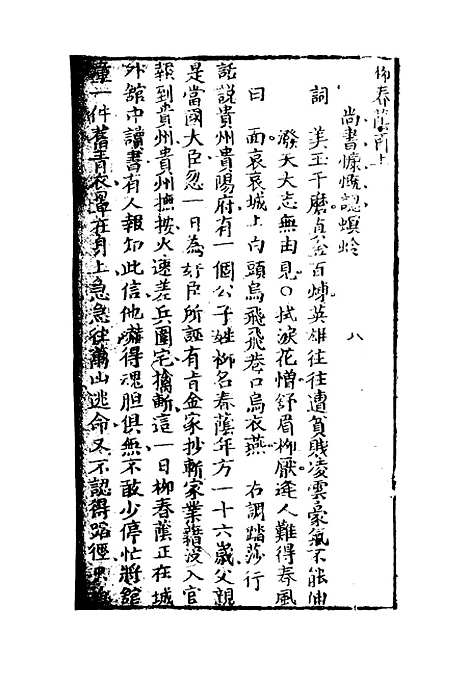 柳春蔭前上
尚書慷慨認螟蛉
八
詞 美玉千磨真金百煉英雄往往遭貧賤凌雲豪氣不能伸
潑天大志無由見○拭淚花憎舒眉柳厭逢人難得春風
面哀哀城上白頭烏飛飛巷口烏衣燕 右調踏莎行
曰
話說貴州貴陽府有一個公子姓柳名春蔭年方一十六歲父親
是當國大臣忽一日為奸臣所誣有旨全家抄斬家業籍沒入官
報到貴州貴州撫按火速差兵圍宅擒斬這一日柳春蔭正在城
外館中讀書有人報知此信他嚇得魂胆俱無不敢少停忙將館
童一件舊青衣罩在身上急急往萬山逃命又不認得路徑